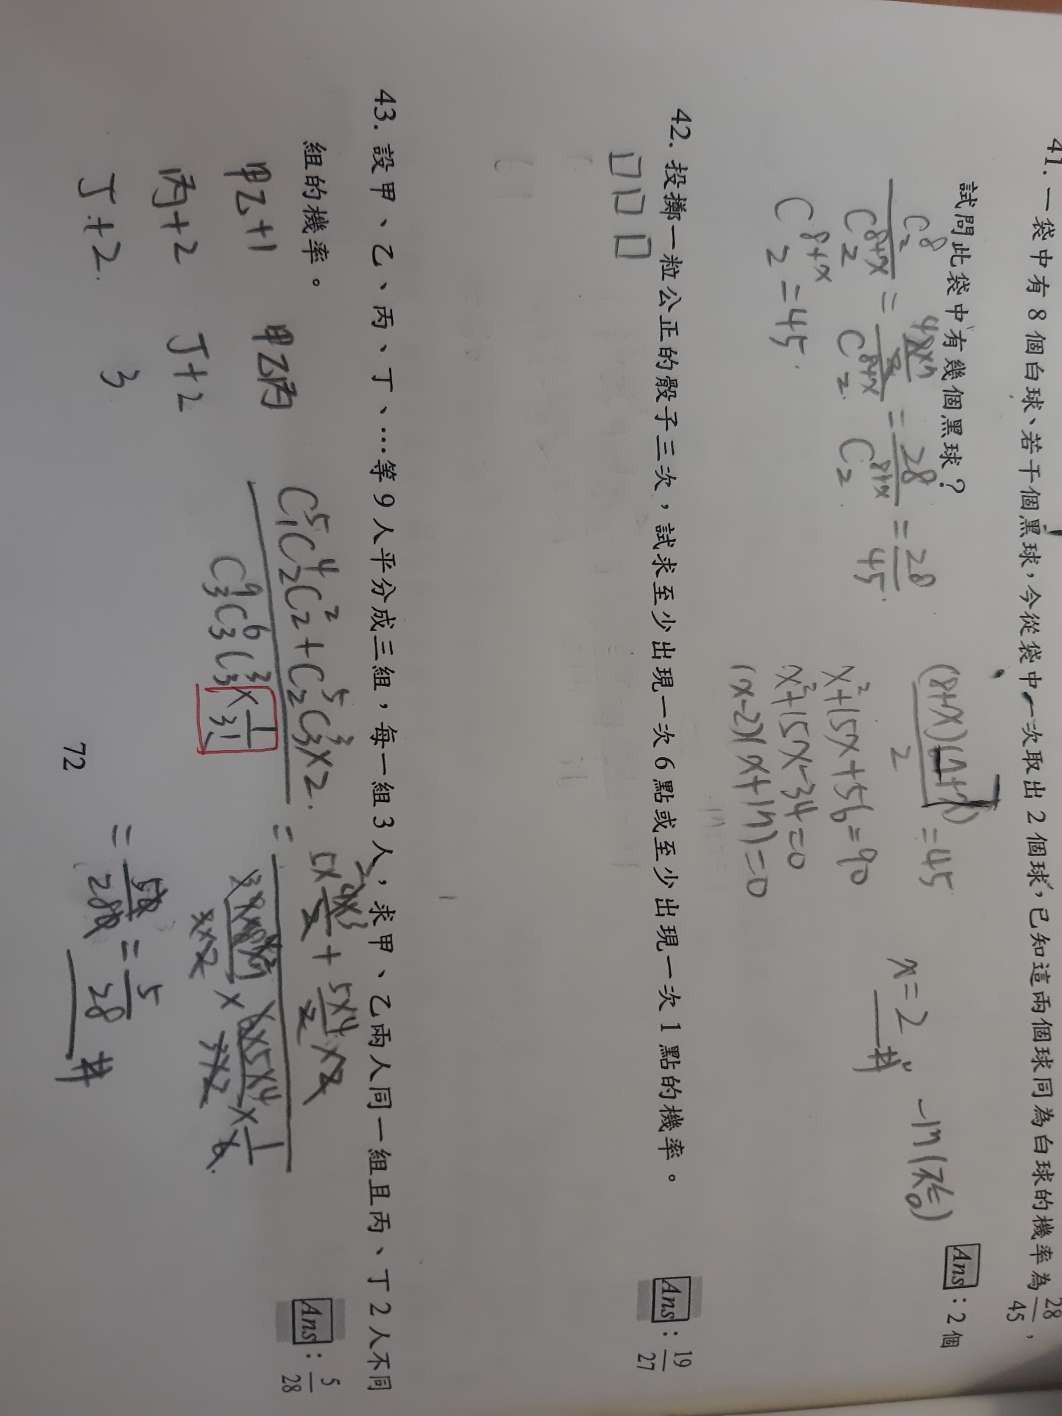 41. 一袋中有8個白球、若干個黑球，今從袋中一次取出2個球，已知這兩個球同為白球的機率為28/45，
試問此袋中有幾個黑球？
Ans：2個
C⁸₂/C⁸⁺ˣ₂ = /C⁸⁺ˣ₂ = 28/C⁸⁺ˣ₂ = 28/45.
C⁸⁺ˣ₂ = 45.
(8+x)(7+x)/2 = 45
x²+15x+56=90
x²+15x-34=0
(x-2)(x+17)=0
x=2 #, -17(不合)
42. 投擲一粒公正的骰子三次，試求至少出現一次6點或至少出現一次1點的機率。
Ans：19/27
□□□
43. 設甲、乙、丙、丁、…等9人平分成三組，每一組3人，求甲、乙兩人同一組且丙、丁2人不同
組的機率。
Ans：5/28
甲乙+1
丙+2
丁+2.
甲乙丙
丁+2
3
C⁵₁C⁴₂C²₂+C⁵₂C³₃×2. / C⁹₃C⁶₃C³₃×1/3!
= 5/28 #
72